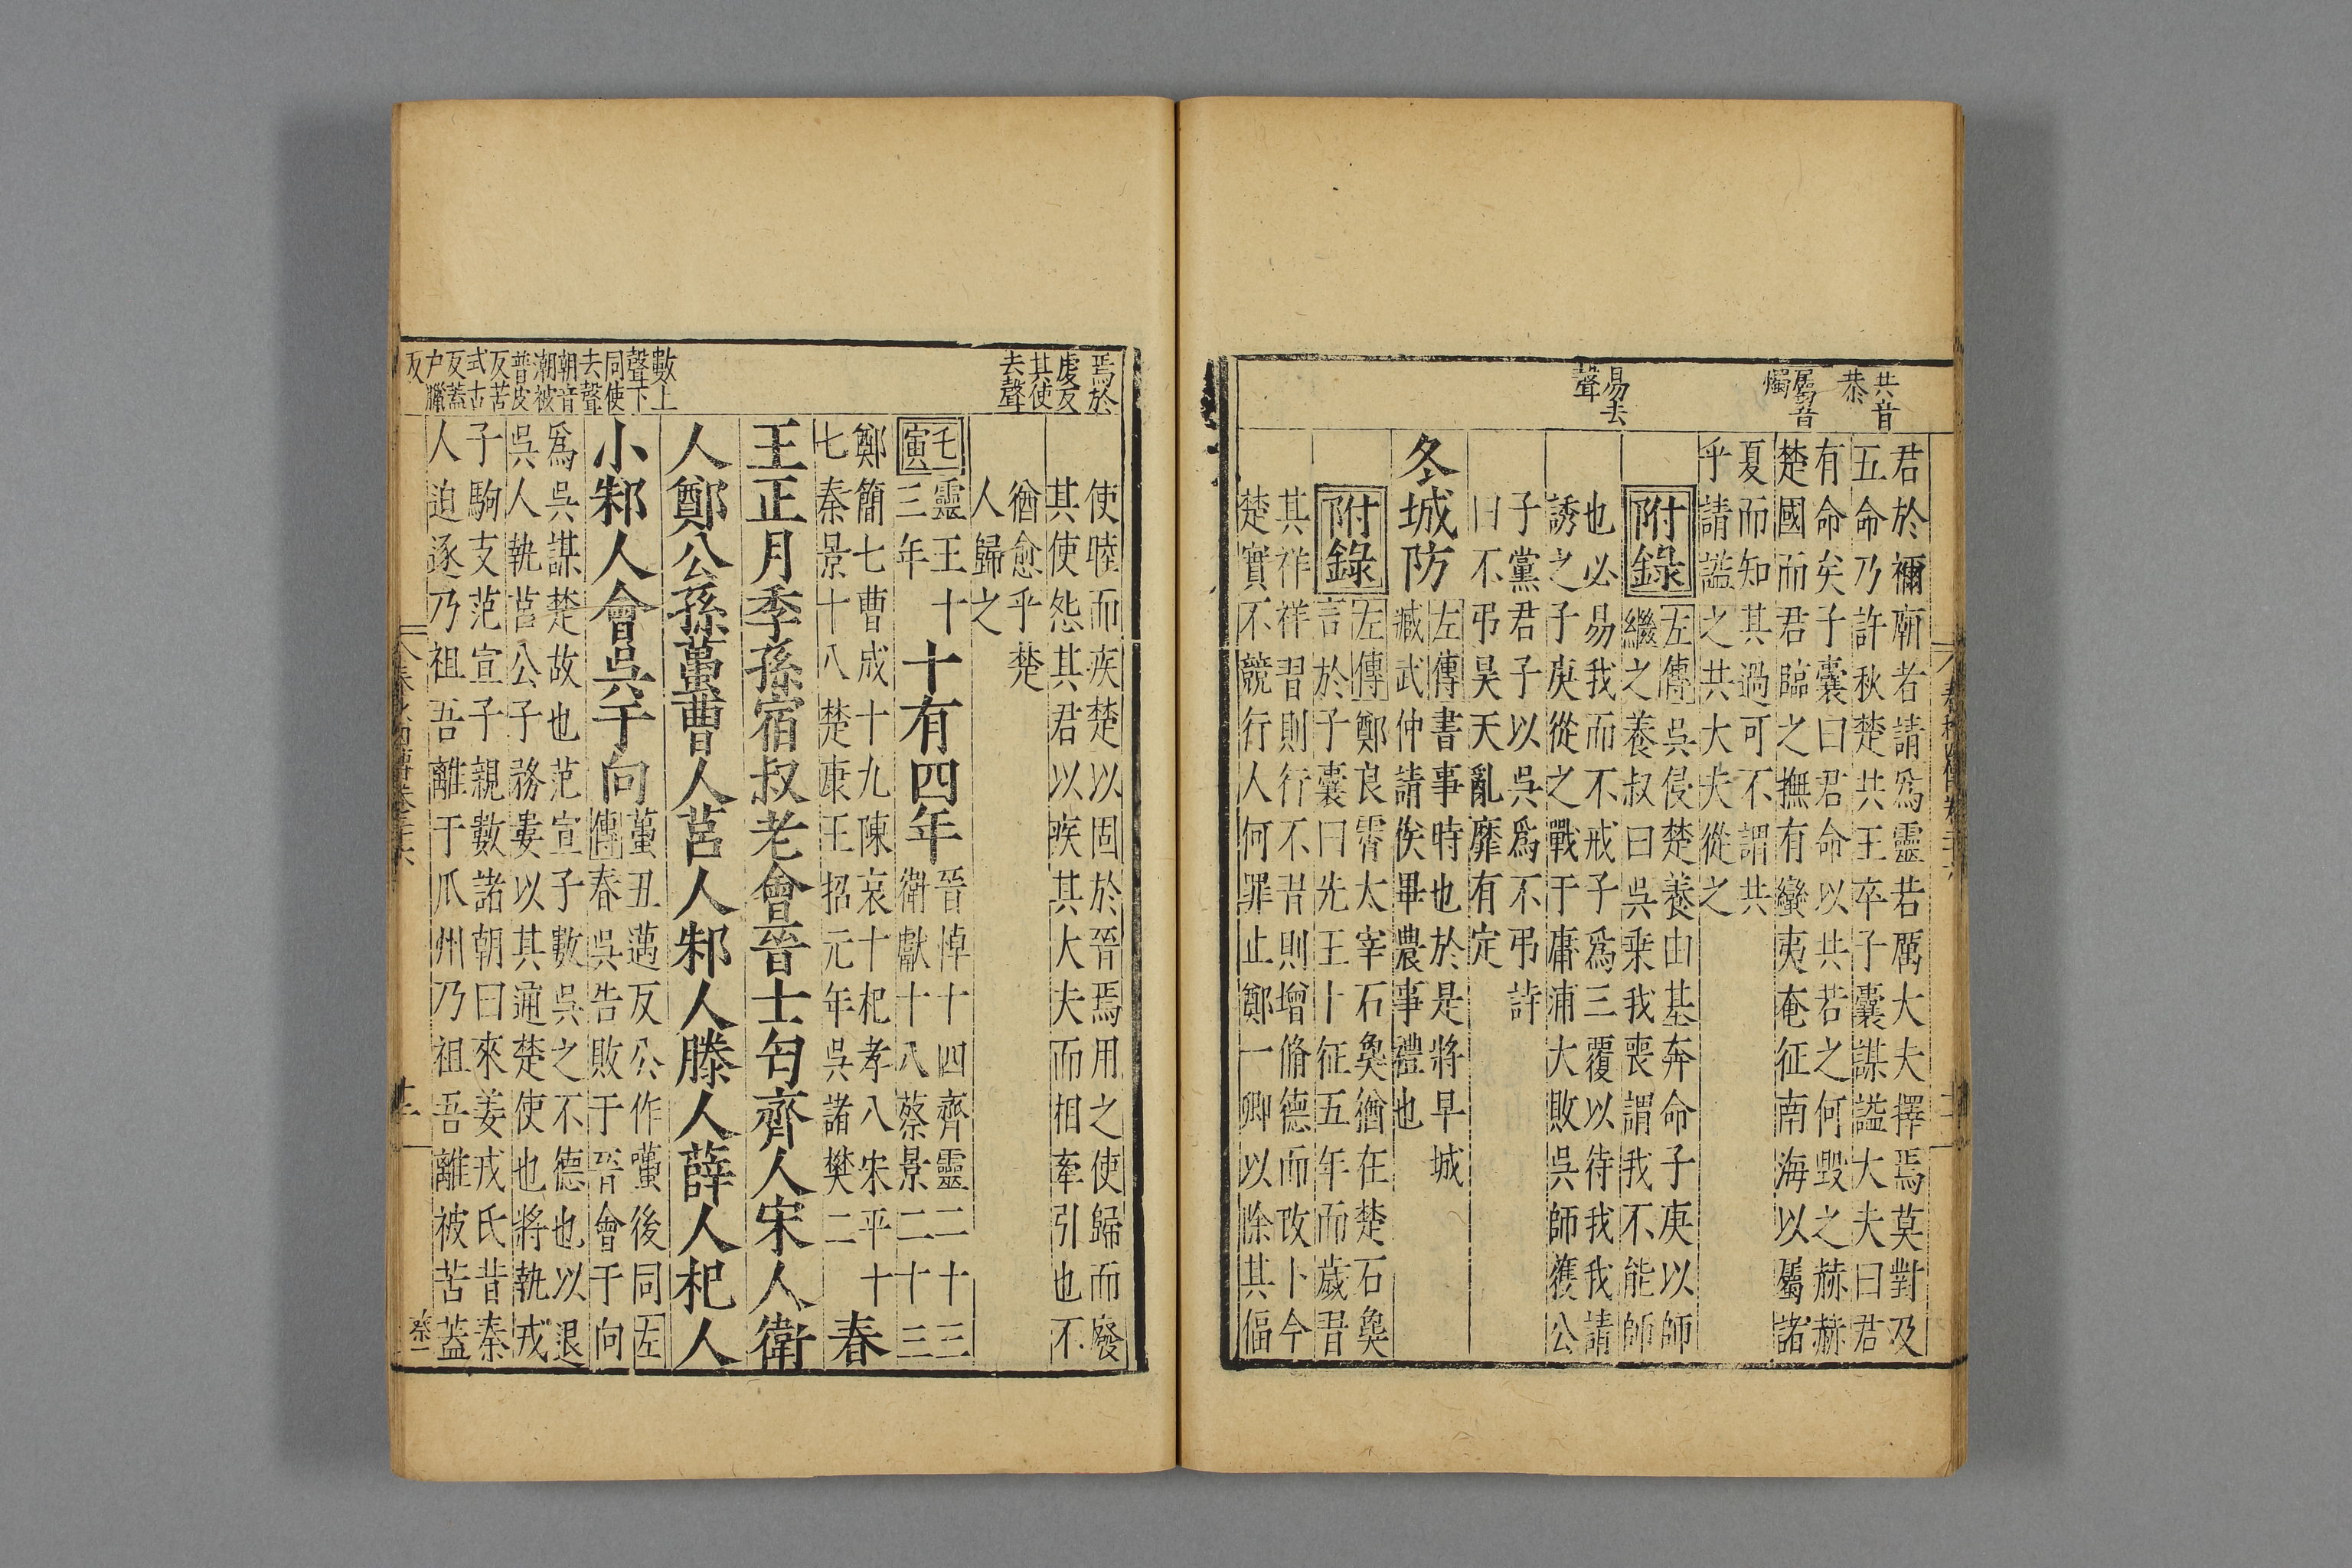 共音
恭
屬音
燭
易去
聲
君於禰廟者請爲靈若厲大夫擇焉莫對及
五命乃許秋楚共王卒子囊謀謚大夫曰君
有命矣子囊曰君命以共若之何毀之赫赫
楚國而君臨之撫有蠻夷奄征南海以屬諸
夏而知其過可不謂共
乎請謚之共大夫從之
附錄
左傳吳侵楚養由基奔命子庚以師
繼之養叔曰吳乘我喪謂我不能師
也必易我而不戒子爲三覆以待我我請
誘之子庚從之戰于庸浦大敗吳師獲公
子黨君子以吳爲不弔詩
曰不弔昊天亂靡有定
冬城防
左傳書事時也於是將早城
臧武仲請俟畢農事禮也
附錄
左傳鄭良霄太宰石㚟猶在楚石㚟
言於子囊曰先王卜征五年而歲習
其祥祥習則行不習則增脩德而改卜今
楚實不競行人何罪止鄭一卿以除其偪
焉於
虔反
其使
去聲
使睦而疾楚以固於晉焉用之使歸而廢
其使怨其君以疾其大夫而相牽引也不
猶愈乎楚
人歸之
壬寅
靈王十
三年
十有四年
晉悼十四齊靈二十三
衛獻十八蔡景二十三
鄭簡七曹成十九陳哀十杞孝八宋平十
七秦景十八楚康王招元年吳諸樊二
春
王正月季孫宿叔老會晉士匄齊人宋人衛
人鄭公孫蠆曹人莒人邾人滕人薛人杞人
小邾人會吳于向
蠆丑邁反公作囆後同左
傳春吳告敗于晉會于向
爲吳謀楚故也范宣子數吳之不德也以退
吳人執莒公子務婁以其通楚使也將執戎
子駒支范宣子親數諸朝曰來姜戎氏昔秦
人迫逐乃祖吾離于瓜州乃祖吾離被苫蓋
數上
聲下
同使
去聲
朝音
潮被
普皮
反苫
式占
反蓋
戶臘
反